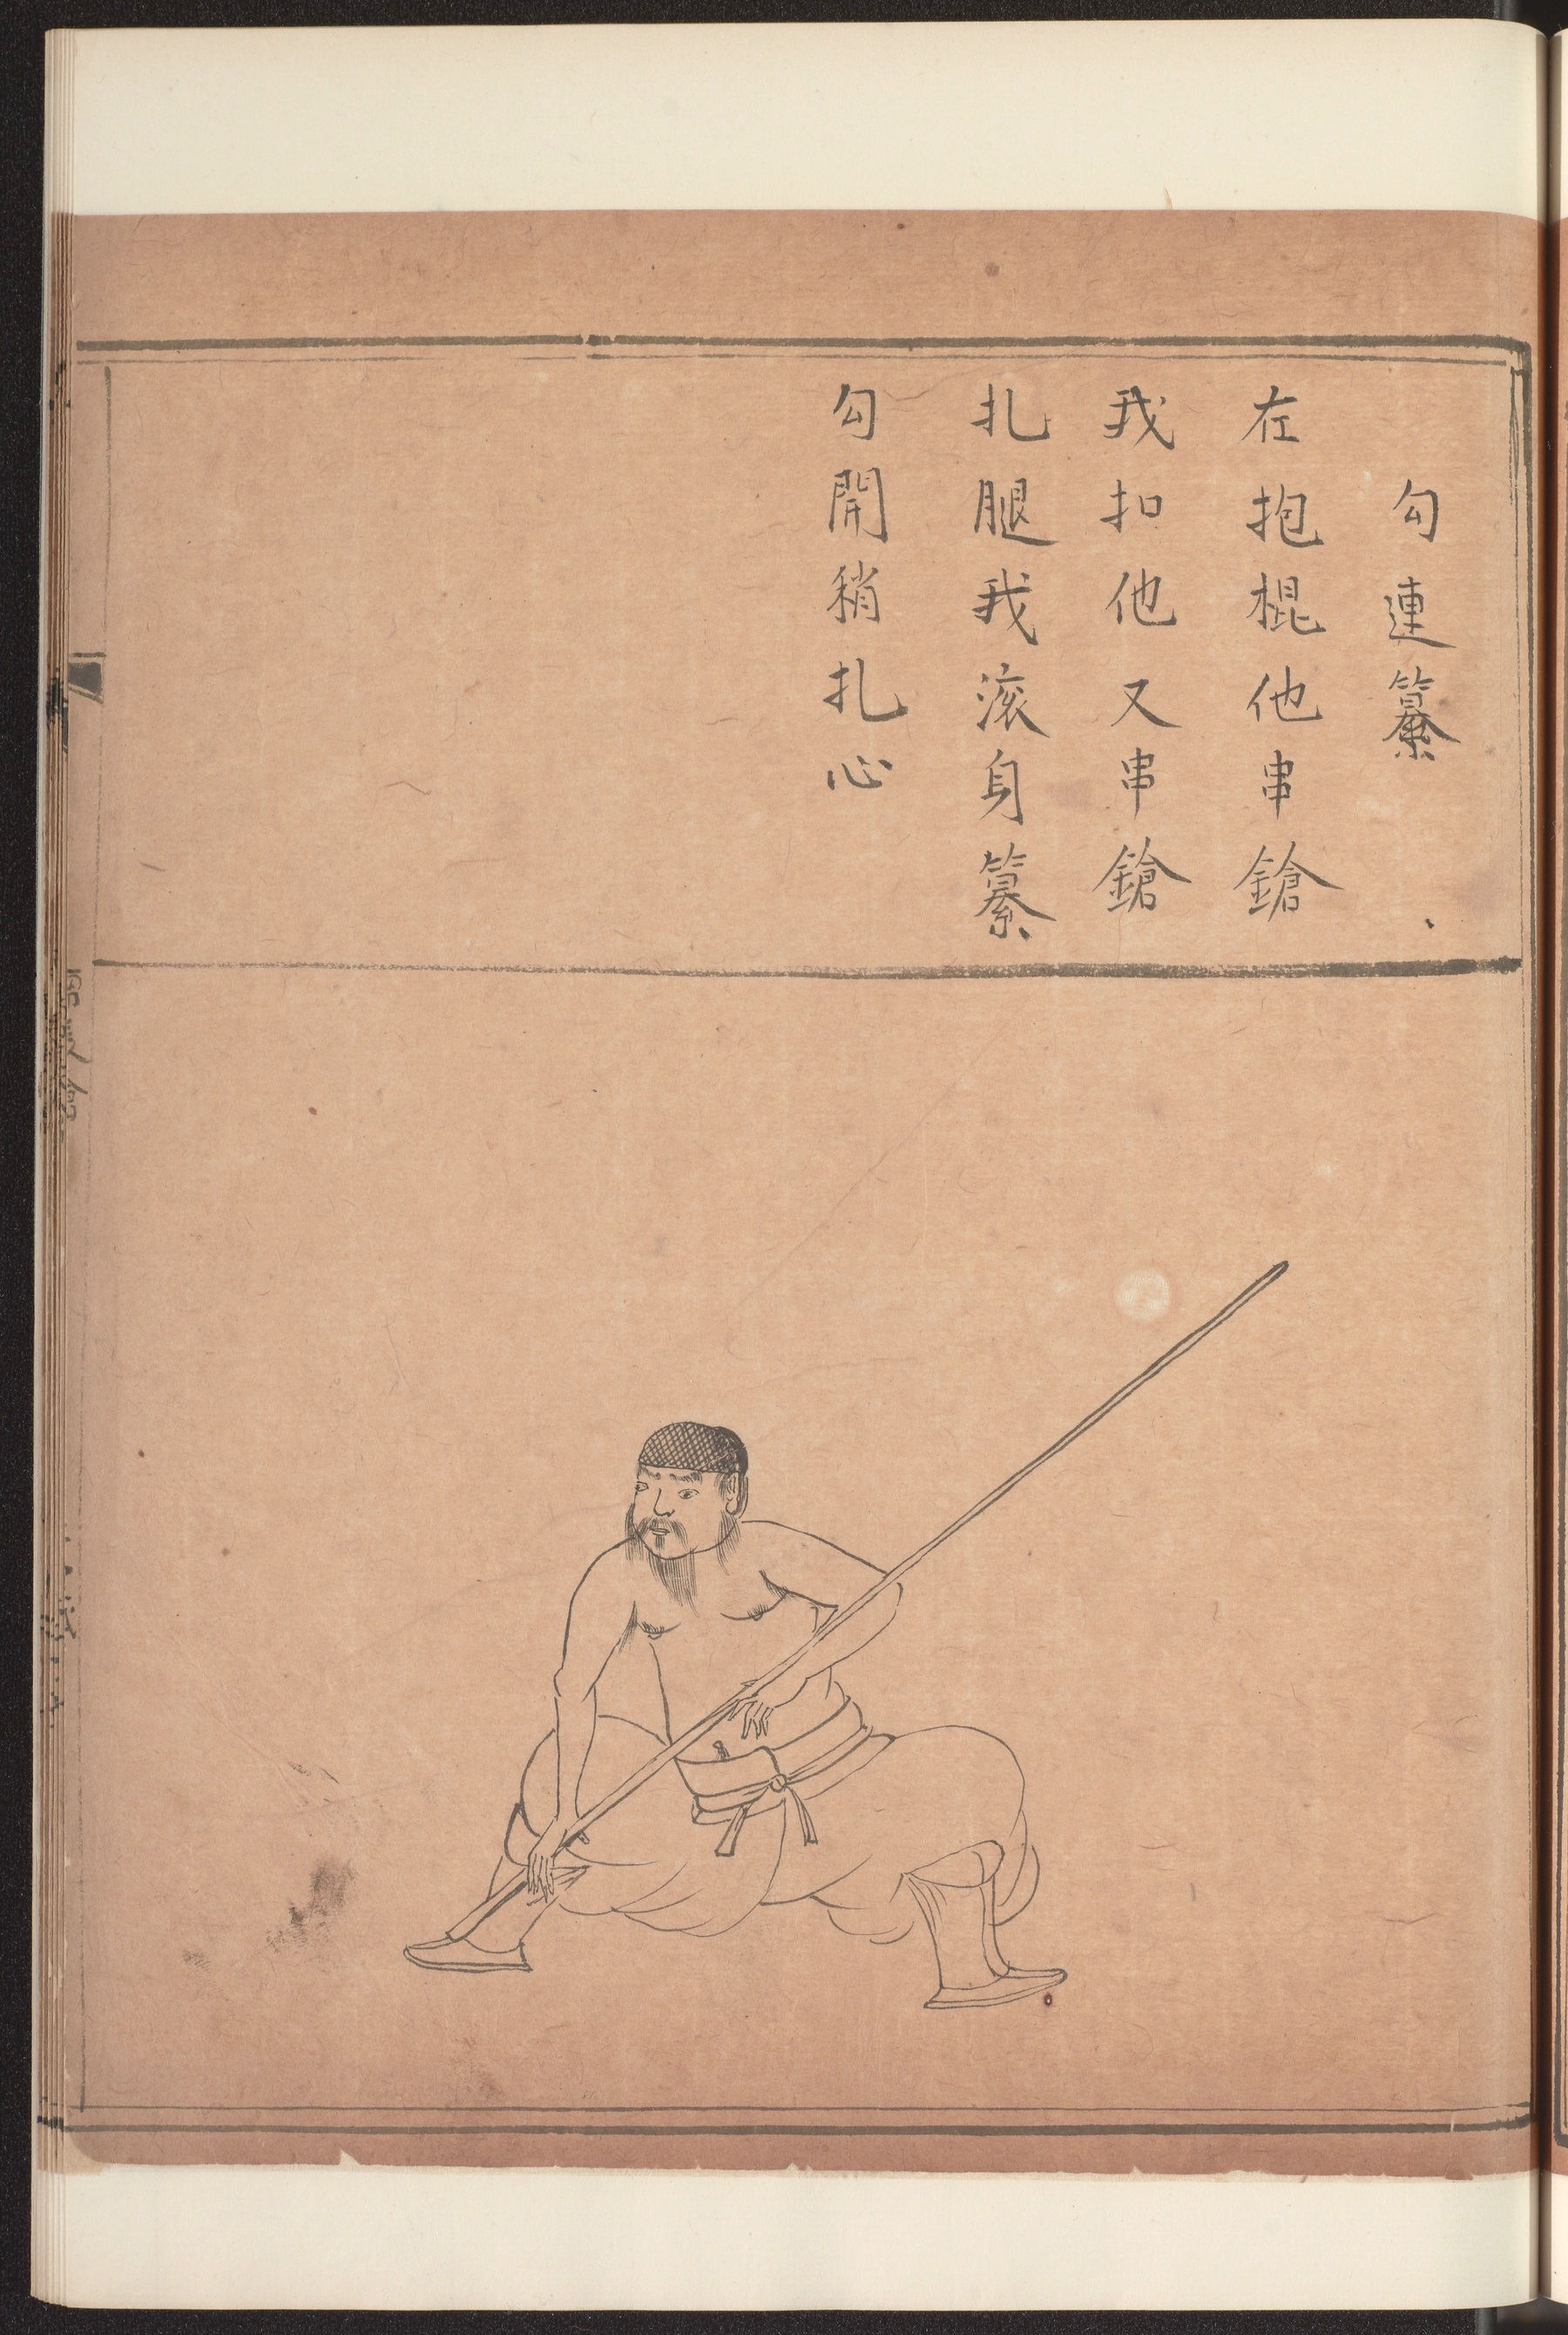 勾連纂
在抱棍他串鎗
我扣他又串鎗
扎腿我滚身纂
勾開稍扎心